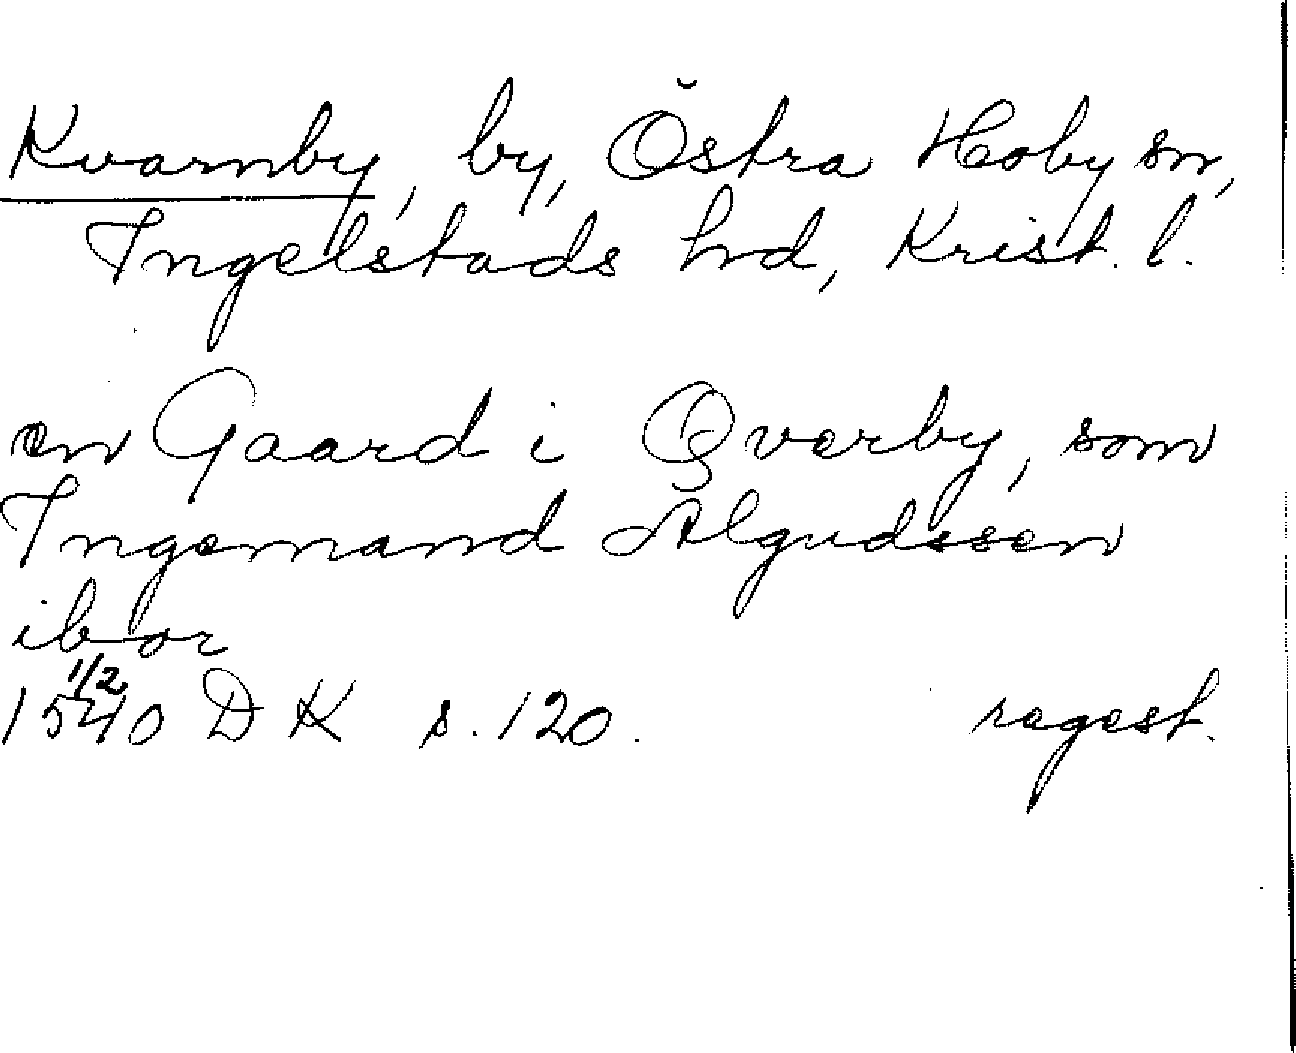 Kvarnby, by, Östra Hoby sn,
Ingelstads hd, Krist. l.
en Gaard i Qverby, som
Ingemand Algudssen
ibor
1/2
1540 DK s. 120. regest.